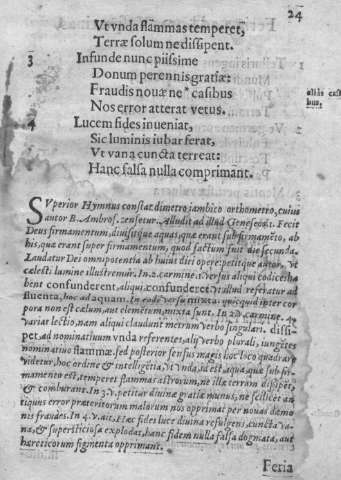 24
Vt vnda flammas temperet,
Terræ solum ne dissipent.
3 Infunde nunc piissime
Donum perennis gratiæ:
Fraudis nouæ ne* casibus
aliàs cas
bus,
Nos error atterat vetus.
4 Lucem fides inueniat,
Sic luminis iubar ferat,
Vt vana cuncta terreat:
Hanc falsa nulla comprimant.
SVperior Hymnus constat dimetro iambico orthometro, cuius
autor B. Ambros. zensetur. Alludit ad illud Geneseos 1. Fecit
Deus firmamentum, diuisitque aquas, quæ erant sub firmamēto, ab
his, quæ erant super firmamentum, quod factum fuit die secunda.
Laudatur Des omnipotentia ab huius diei opere: petitque autor, vt
cælesti lumine illustremur. In 2. carmine 1. versus aliqui codices ha
bent confunderent, aliqui confunderet: vt illud referatur ad
fluenta, hoc ad aquam. In eodē versu mixta: quicquid inter cor
pora non est cælum, aut elemētum, mixta sunt. In 2. carmine. 4.
variat lectio, nam aliqui claudunt metrum verbo singulari dissi-
pet, ad nominatiuum vnda referentes, alij verbo plurali, iungētes
nominatiuo flammæ, sed posterior sensus magis hoc loco quadrare
videtur, hoc ordine & intelligētia, Vt vnda, id est, aqua, quæ sub fir-
mamento est, temperet flammas astrorum, ne illæ terram dissipēt,
& comburant. In 3. v. petitur diuinæ gratiæ munus, ne scilicet an
tiquus error præteritorum malorum nos opprimat per nouas dæmo
nis fraudes. In 4. v. ait: Hæc fides luce diuina refulgens, cuncta va-
na, & superstitiosa explodat, hanc fidem nulla falsa dogmata, aut
hæreticorum figmenta opprimant.
Feria